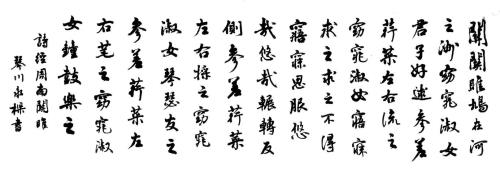 關關雎鳩在河
之洲窈窕淑女
君子好逑參差
荇菜左右流之
窈窕淑女寤寐
求之求之不得
寤寐思服悠
哉悠哉輾轉反
側參差荇菜
左右採之窈窕
淑女琴瑟友之
參差荇菜左
右芼之窈窕淑
女鐘鼓樂之
詩經周南關雎
琴川永書